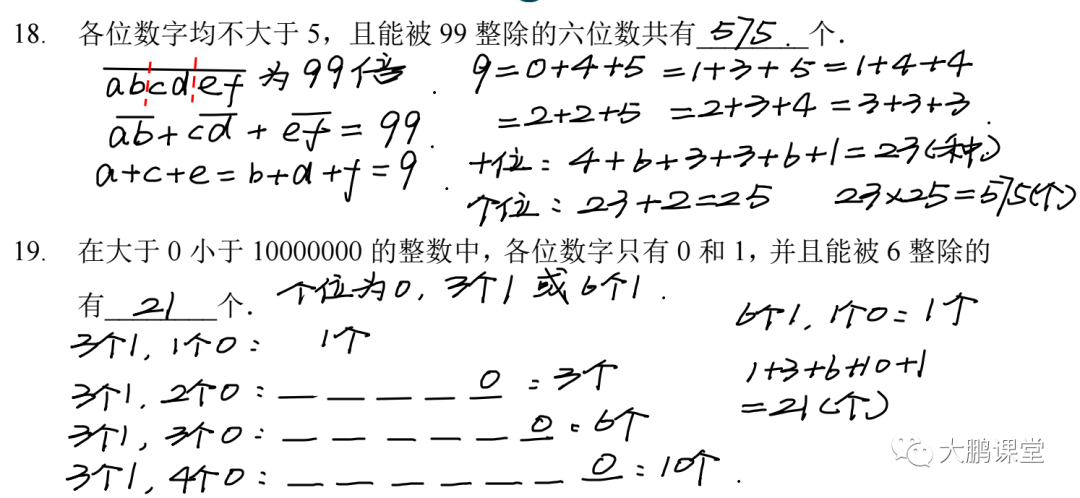 18. 各位数字均不大于 5，且能被 99 整除的六位数共有 575. 个.
abcdef 为 99 倍 .
9=0+4+5 =1+3+5=1+4+4
=2+2+5 =2+3+4 =3+3+3.
ab+cd+ef=99.
a+c+e=b+d+f=9.
十位：4+6+3+3+6+1=23(种)
个位：23+2=25 23×25=575(个)
19. 在大于 0 小于 10000000 的整数中，各位数字只有 0 和 1，并且能被 6 整除的
有 21 个. 个位为0，3个1 或 6个1.
3个1，1个0： 1个
6个1，1个0=1个
3个1，2个0：_ _ _ _ 0 =3个
1+3+6+10+1
=21(个)
3个1，3个0：_ _ _ _ _ 0 =6个
3个1，4个0：_ _ _ _ _ _ 0 =10个.
大鹏课堂